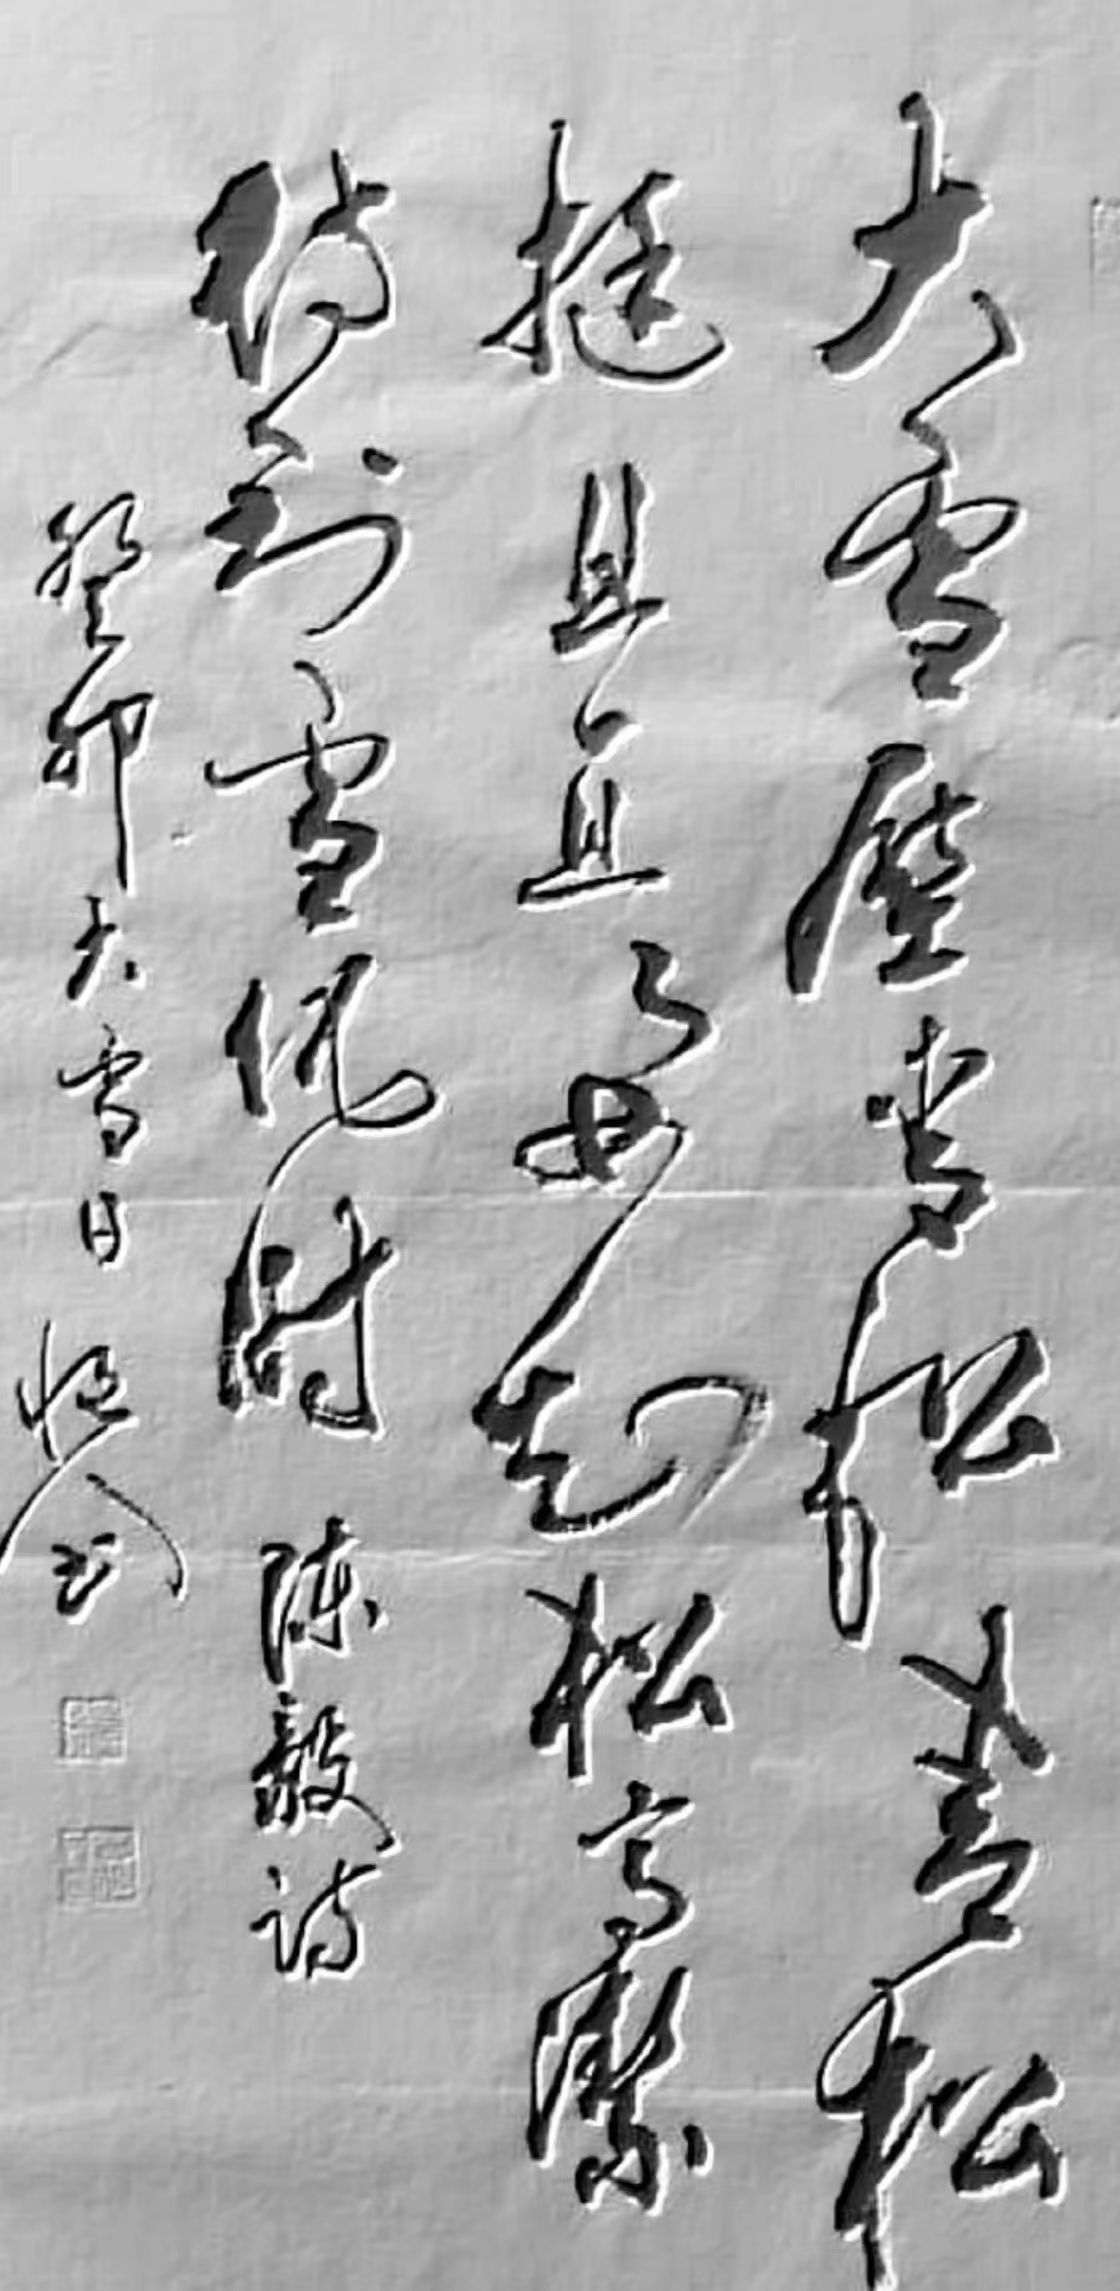 大雪壓青松青松
挺且直要知松高潔
待到雪化時 陳毅詩
癸卯大雪日